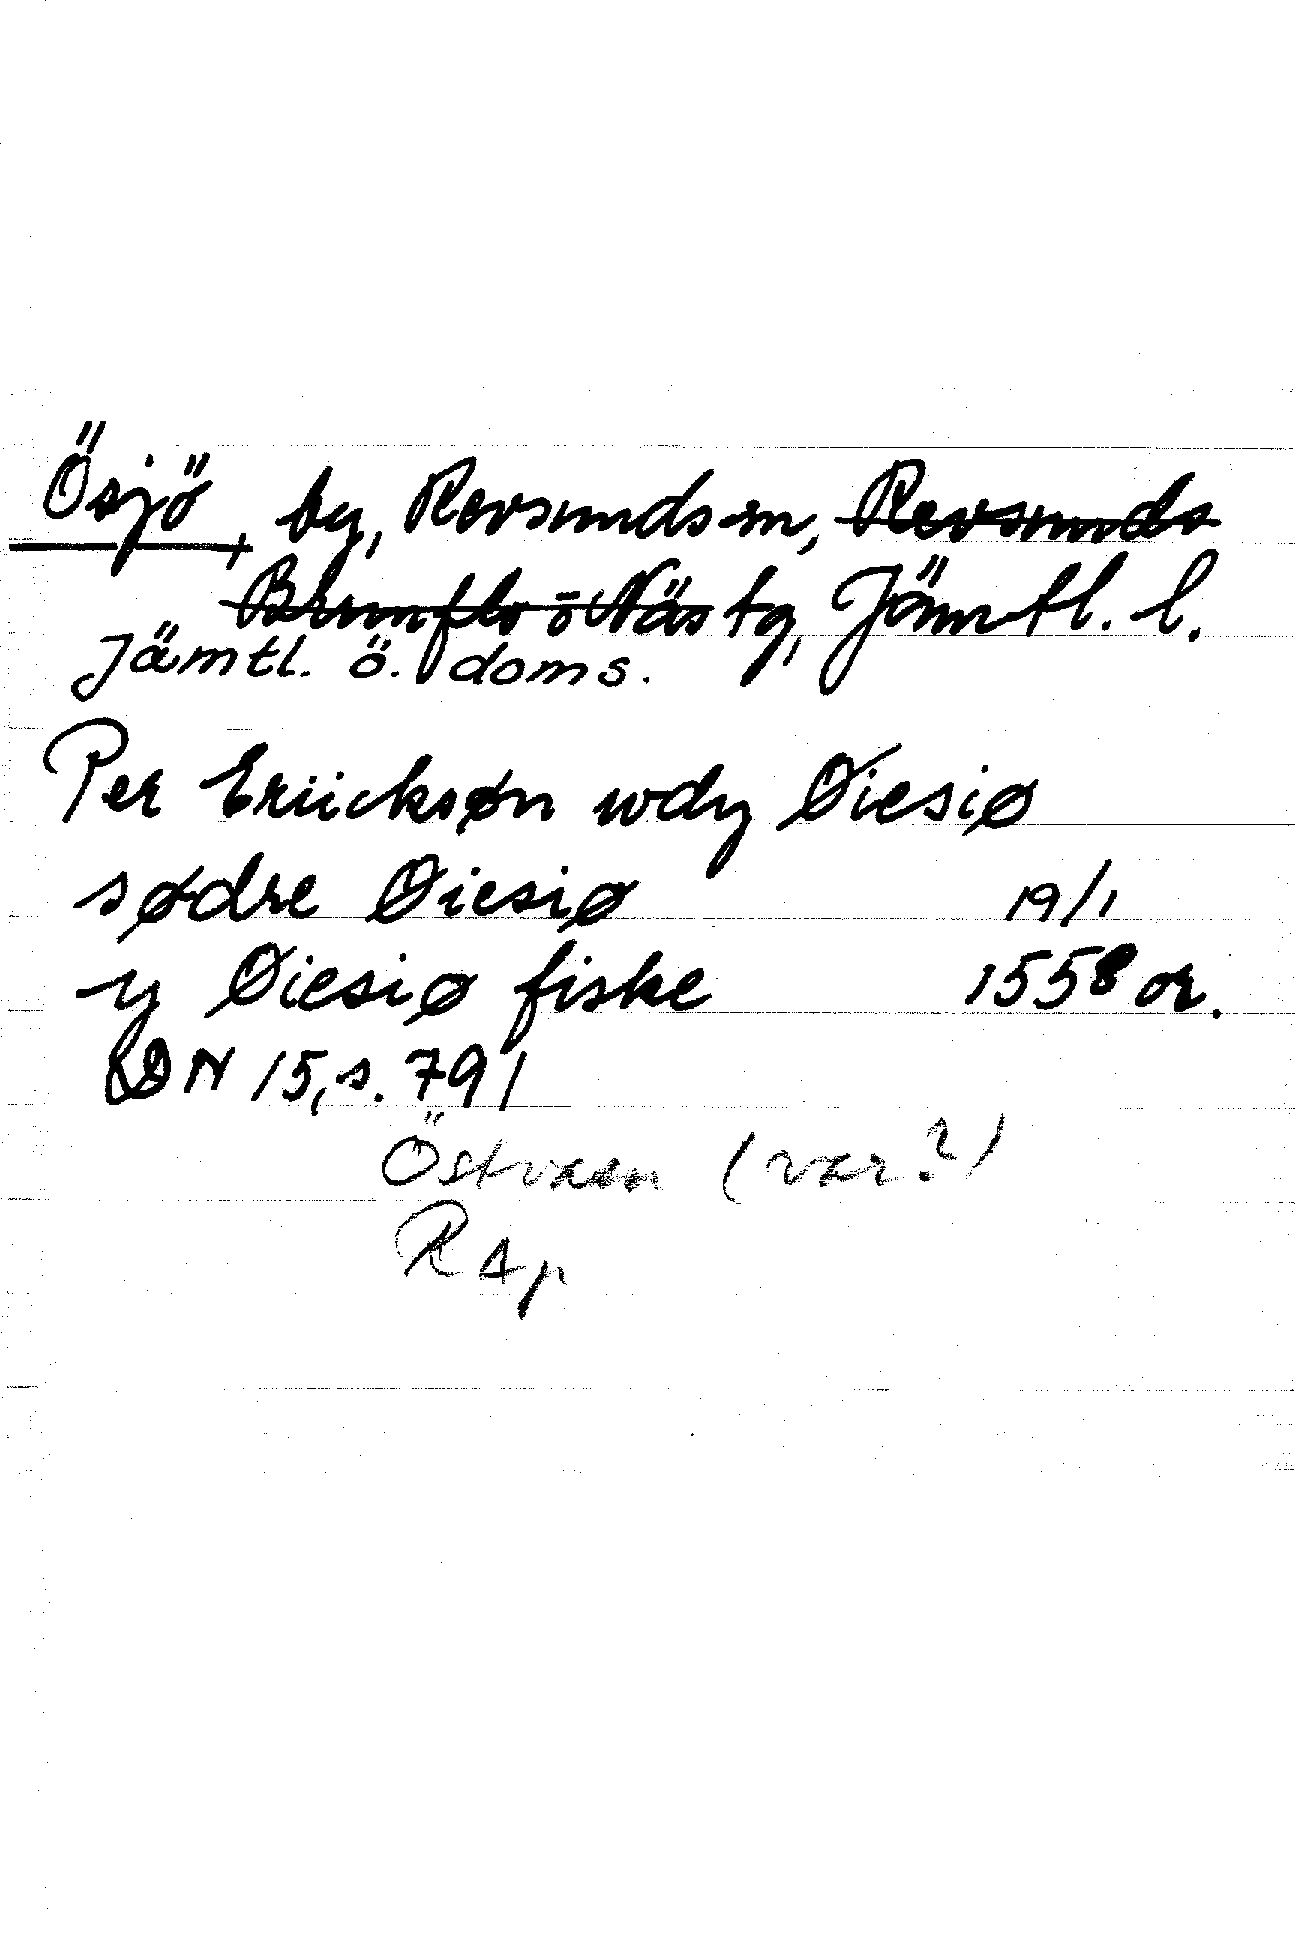 Ösjö, by, Revsunds sn, Revsunds
Brunflo o Näs tg, Jämtl. l.
Jämtl. ö. doms.
Per Eriickssøn wdy Øiesiø
sødre Øiesiø 19/1
y Øiesiø fiske 1558 or.
DN 15, s. 791
(var?)